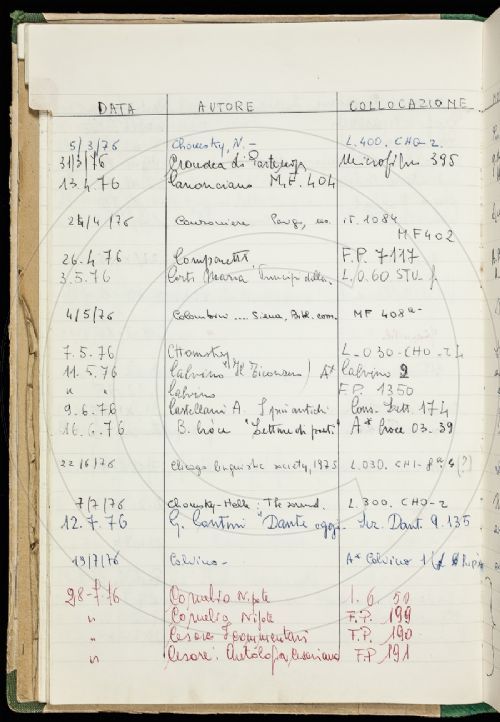 DATA AUTORE COLLOCAZIONE
5/3/76 Chomsky, N. - L.400. CHO-2.
31/3/76 Cronaca di Partenope Microfilm 395
13.4.76 M.F. 404
24/4/76 it. 1084
MF402
26.4.76 Comparetti F.P. 7117
3.5.76 Corti Maria Principi della. L/0.60 STU.
4/5/76 Colombini .... Siena, Bibl. com. MF 408
7.5.76 Chomsky L-030-CHO-24
11.5.76 Calvino "Il Visconte" A* Calvino 2
" " Calvino F.P. 1350
9.6.76 Castellani A. I più antichi Cons. Lett. 174
16.6.76 B. Croce "Letture di poeti" A* Croce 03-39
22/6/76 Chicago linguistic society, 1975 L.030. CHI-
7/7/76 Chomsky-Halle: The sound. L.300. CHO-2
12.7.76 G. Contini "Dante oggi- Dant. 9.135
19/7/76 Calvino- A* Calvino
28-7-76 Cornelio Nipote 1. 6. 50
" Cornelio Nipote F.P. 199
" Cesare I commentari F.P. 190
" Cesare: Antologia cesariana F.P 191